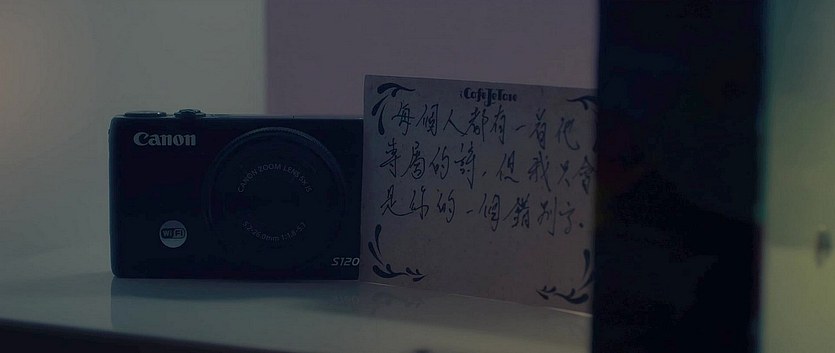 Canon
CANON ZOOM LENS 5x IS
5.2-26.0mm 1:1.8-5.7
Wi Fi
S120
每個人都有一首他
專屬的詩,但我只會
是你的一個錯別字.